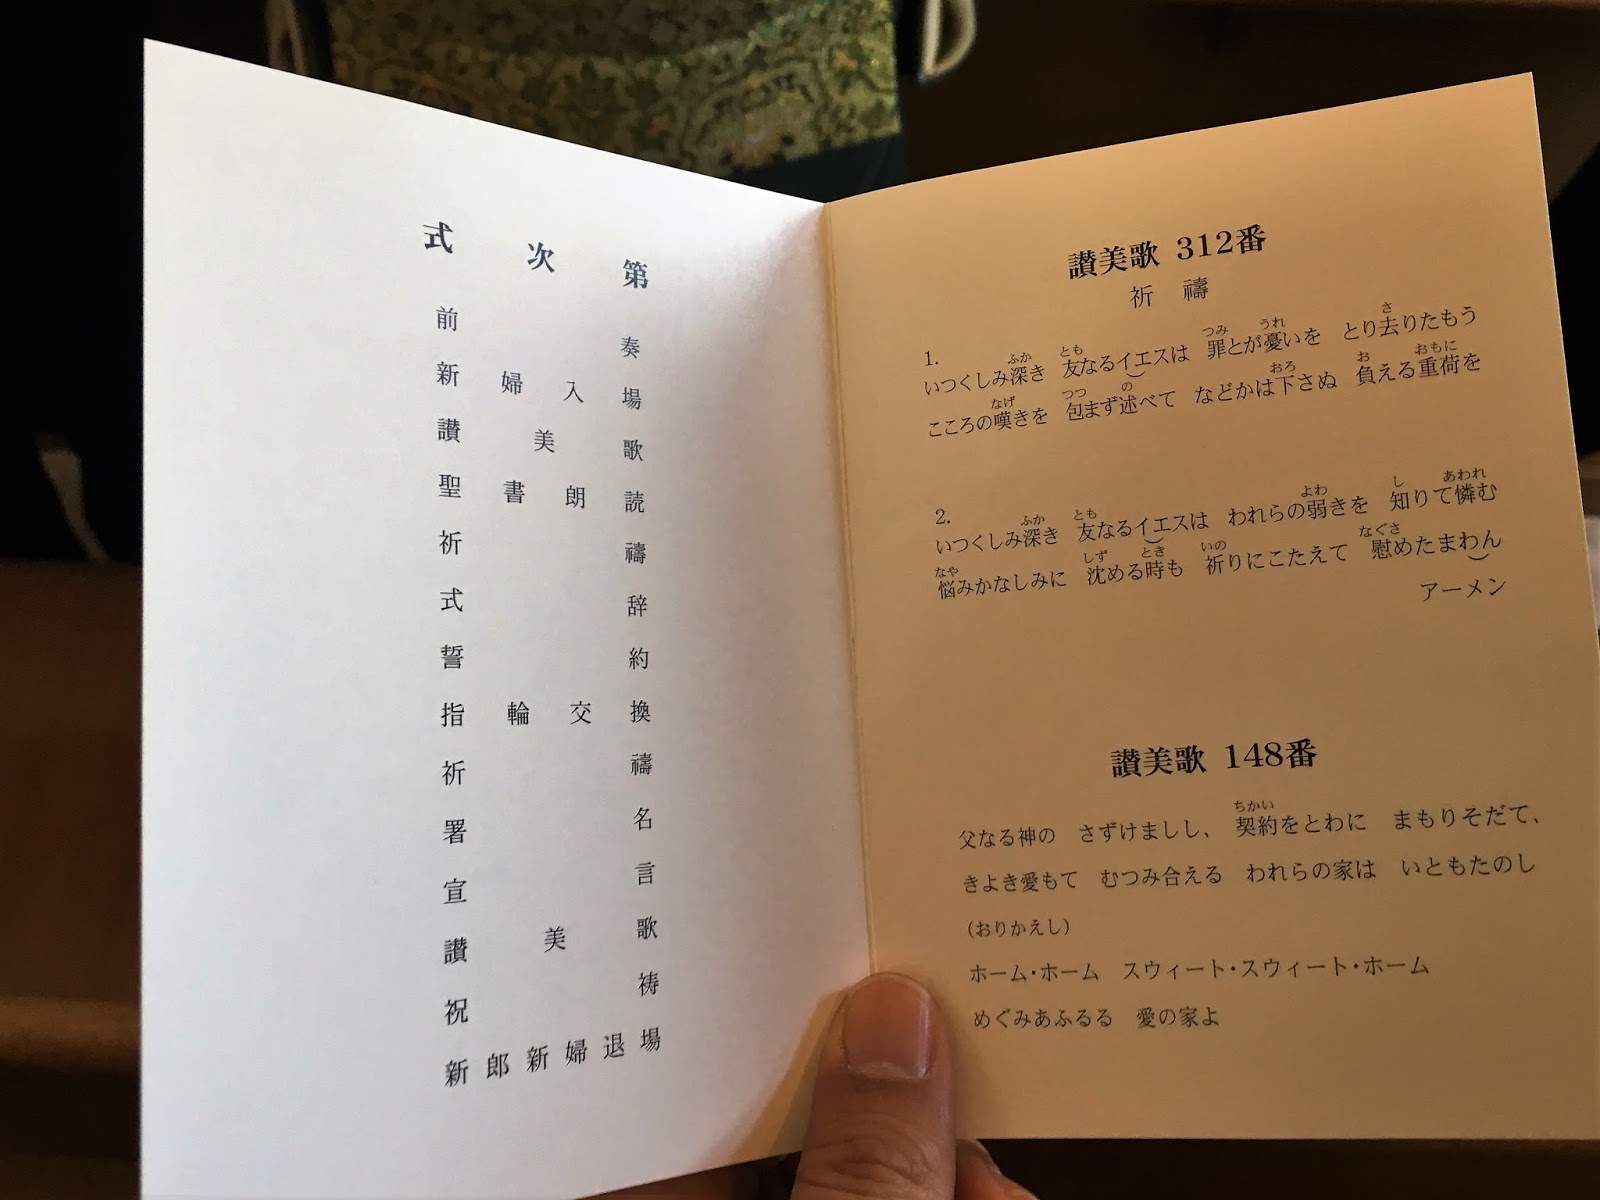 式次第
前奏
新婦入場
讃美歌
聖書朗読
祈禱
式辞
誓約
指輪交換
祈禱
署名
宣言
讃美歌
祝祷
新郎新婦退場
讃美歌 312番
祈禱
1.
いつくしみ深き 友なるイエスは 罪とが憂いを とり去りたもう
こころの嘆きを 包まず述べて などかは下さぬ 負える重荷を
2.
いつくしみ深き 友なるイエスは われらの弱きを 知りて憐む
悩みかなしみに 沈める時も 祈りにこたえて 慰めたまわん
アーメン
讃美歌 148番
父なる神の さずけましし、 契約をとわに まもりそだて、
きよき愛もて むつみ合える われらの家は いともたのし
(おりかえし)
ホーム・ホーム スウィート・スウィート・ホーム
めぐみあふるる 愛の家よ